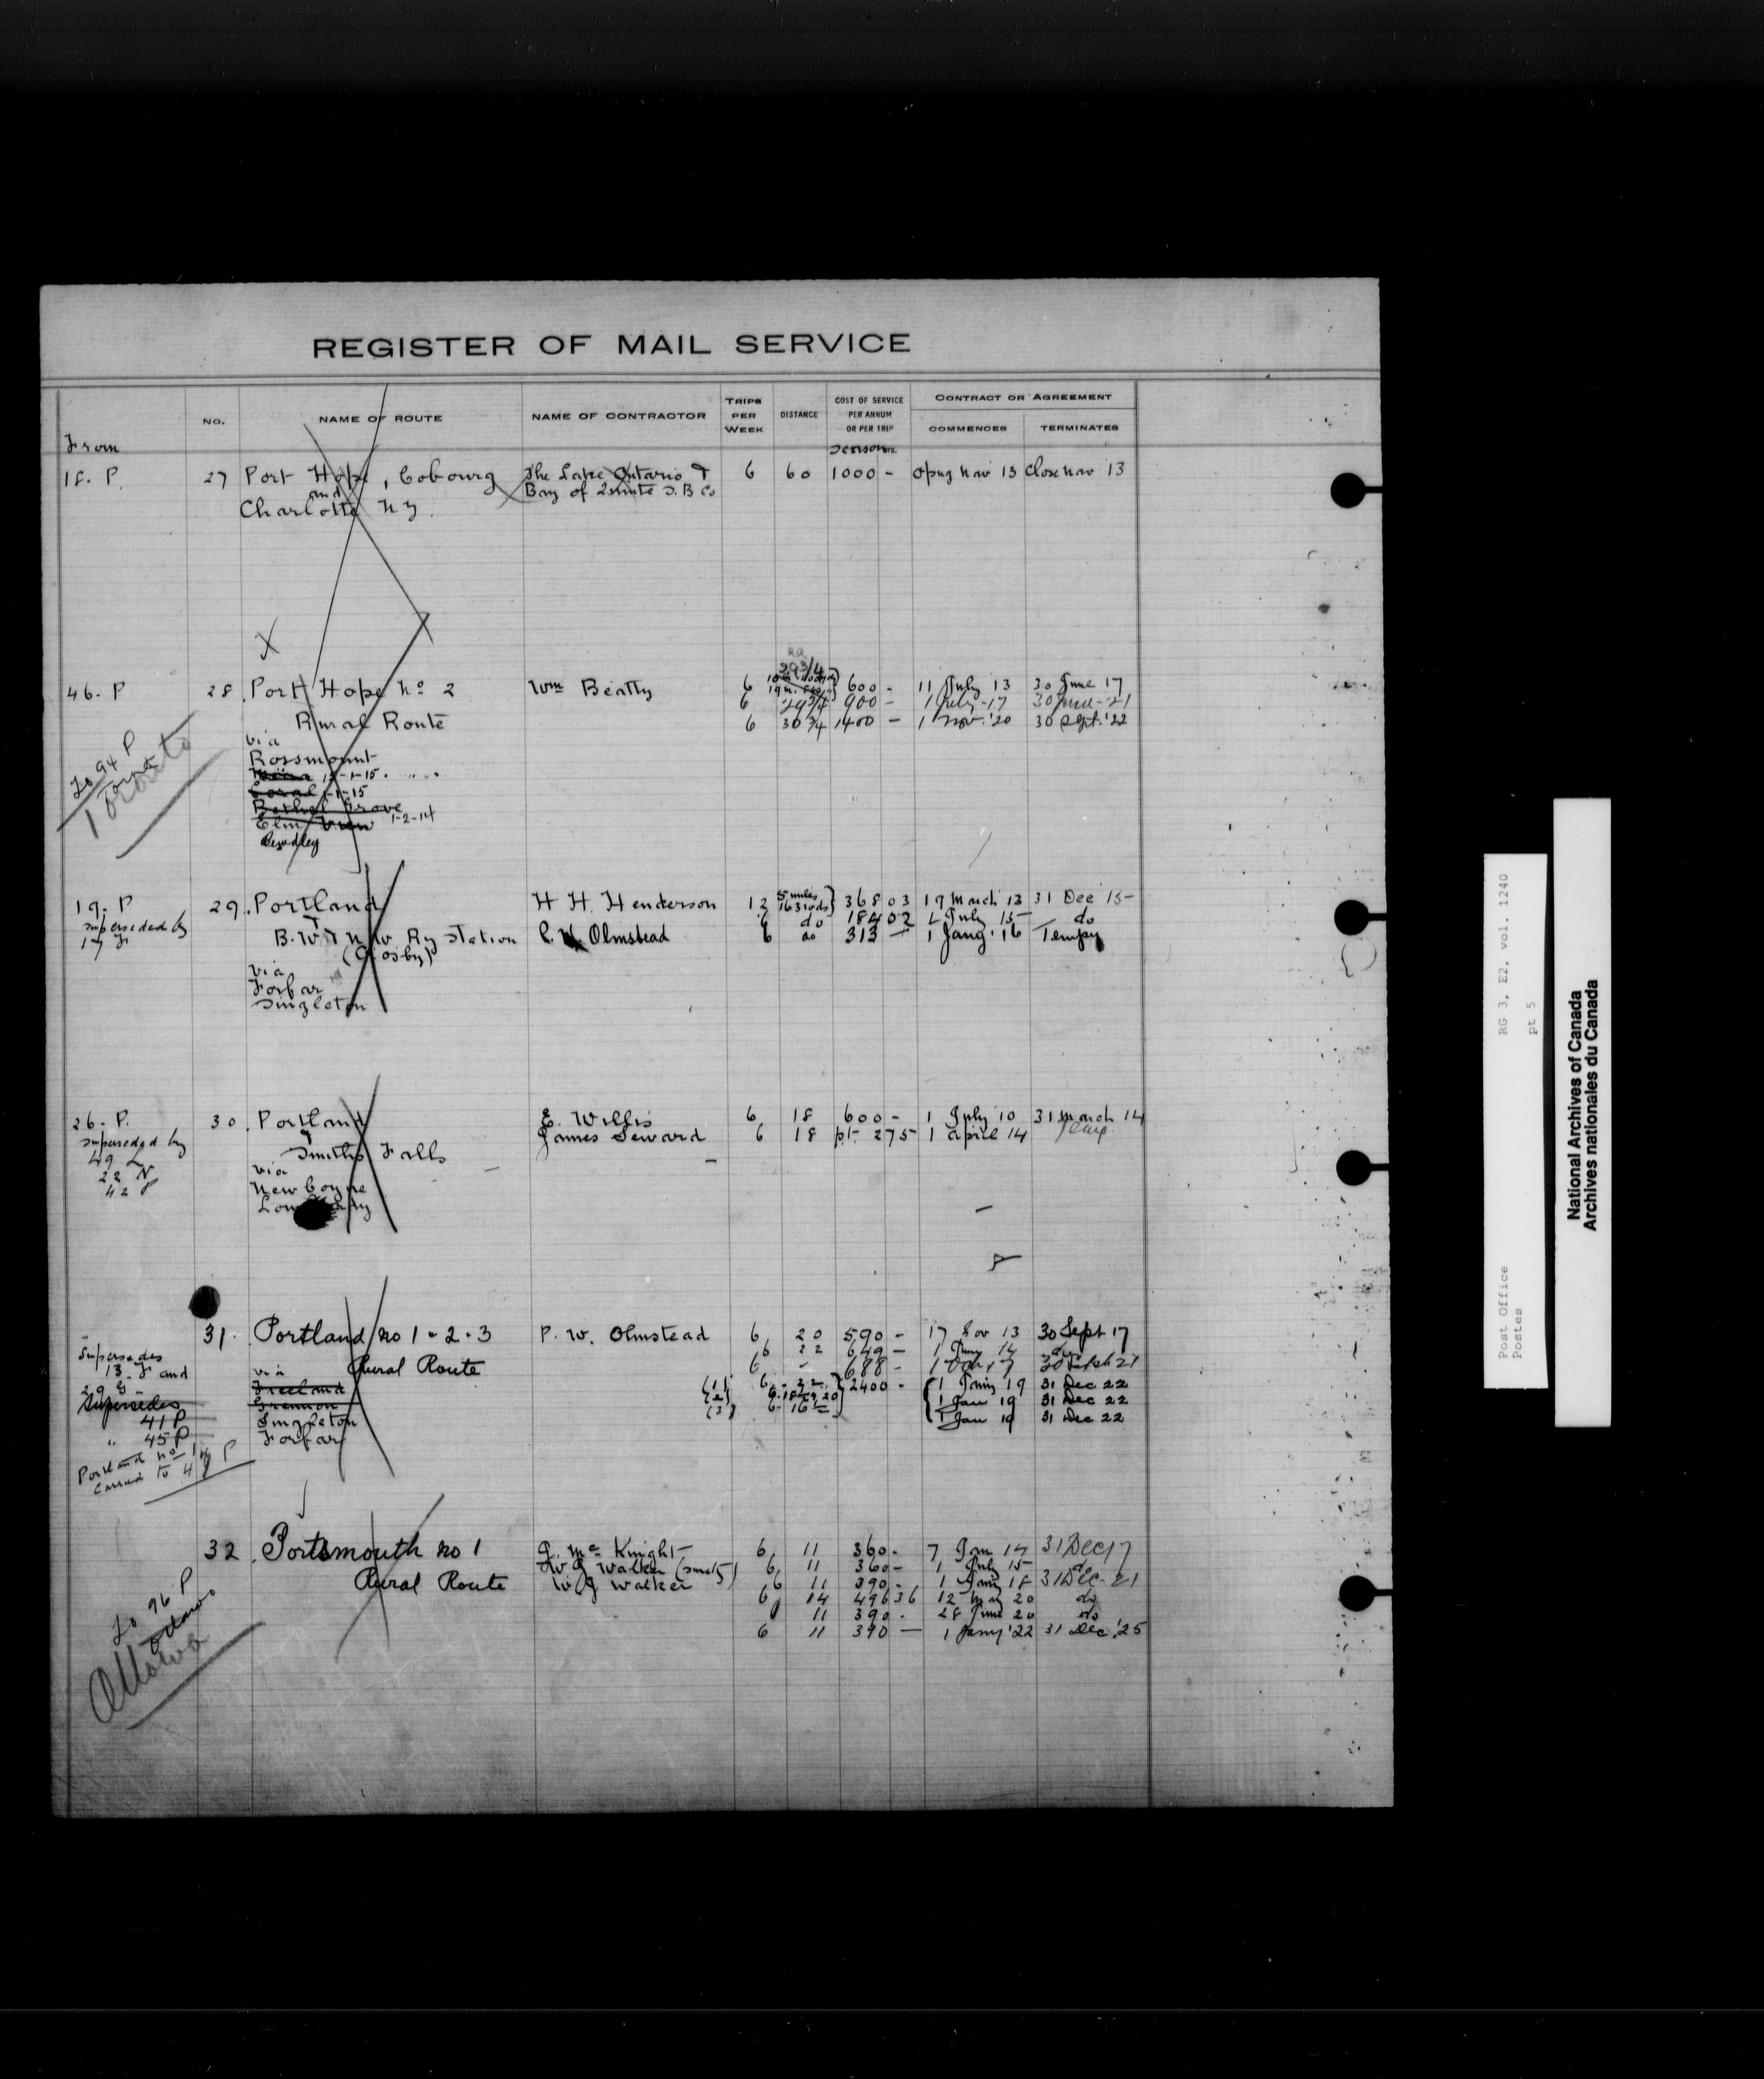 REGISTER OF MAIL SERVICE
From
NO.
NAME OF ROUTE
NAME OF CONTRACTOR
TRIPS PER WEEK
DISTANCE
COST OF SERVICE PER ANNUM OR PER TRIP
Season
CONTRACT OR AGREEMENT
COMMENCES
TERMINATES
18. P. 27 Port Hope, Cobourg The Lake Ontario & 6 60 1000 - Opng nav 13 Close nav 13
and Bay of Quinte S. B Co
Charlotte N Y.
X
29 3/4
46. P 28. Port Hope No 2 Wm Beatty 6 600 - 11 July 13 30 June 17
6 29 3/4 900 - 1 July-17 30 June-21
Rural Route 6 30 3/4 1400 - 1 Nov. '20 30 Sept. '22
via
Rossmount
15-1-15
Coral 1-1-15
Bethel Grove
Elm View 1-2-14
Bewdley
To 94 P
Toronto
Toronto
19. P 29. Portland H H. Henderson 12 5 miles 16 3 rods } 368 03 19 March 13 31 Dec 15
superseded by & 6 do 184 02 1 July 15 do
17 F B. W & N. W. Ry Station Olmstead 6 do 313 - 1 Jany. 16 Tempy
(Crosby)
via
Forfar
Singleton
26. P. 30. Portland E. Willis 6 18 600 - 1 July 10 31 March 14
superseded by & James Seward 6 18 pt. 275 1 April 14
49 L Smiths Falls
22 N via
42 P Newboyne
31. Portland No 1-2-3 P. W. Olmstead 6 20 590 - 17 Nov 13 30 Sept 17
Supersedes 6 22 649 - 1 Jany 14 do
13. F and via Rural Route 6 - 688 -
29 G Freeland (1) 6 - 22 } 2400 - 1 Jany 19 31 Dec 22
Supersedes (2) 6 1 Jan 19 31 Dec 22
41 P Singleton (3) 6 - 16 1/2 1 Jan 19 31 Dec 22
" 45 P Forfar
Portland No 1
carried to
32. Portsmouth No 1 J. Mc Knight 6 11 360 - 7 Jan 14 31 Dec 17
W J Walker 6 11 360 - 1 July 15 do
Rural Route W J Walker 6 11 390 - 1 Jany 18 31 Dec - 21
6 14 496 36 12 May 20 do
11 390 - 28 June 20 do
6 11 390 - 1 Jany '22 31 Dec. '25
To 96 P
Ottawa
Ottawa
Post Office RG 3, E2, vol. 1240
Postes pt 5
National Archives of Canada
Archives nationales du Canada